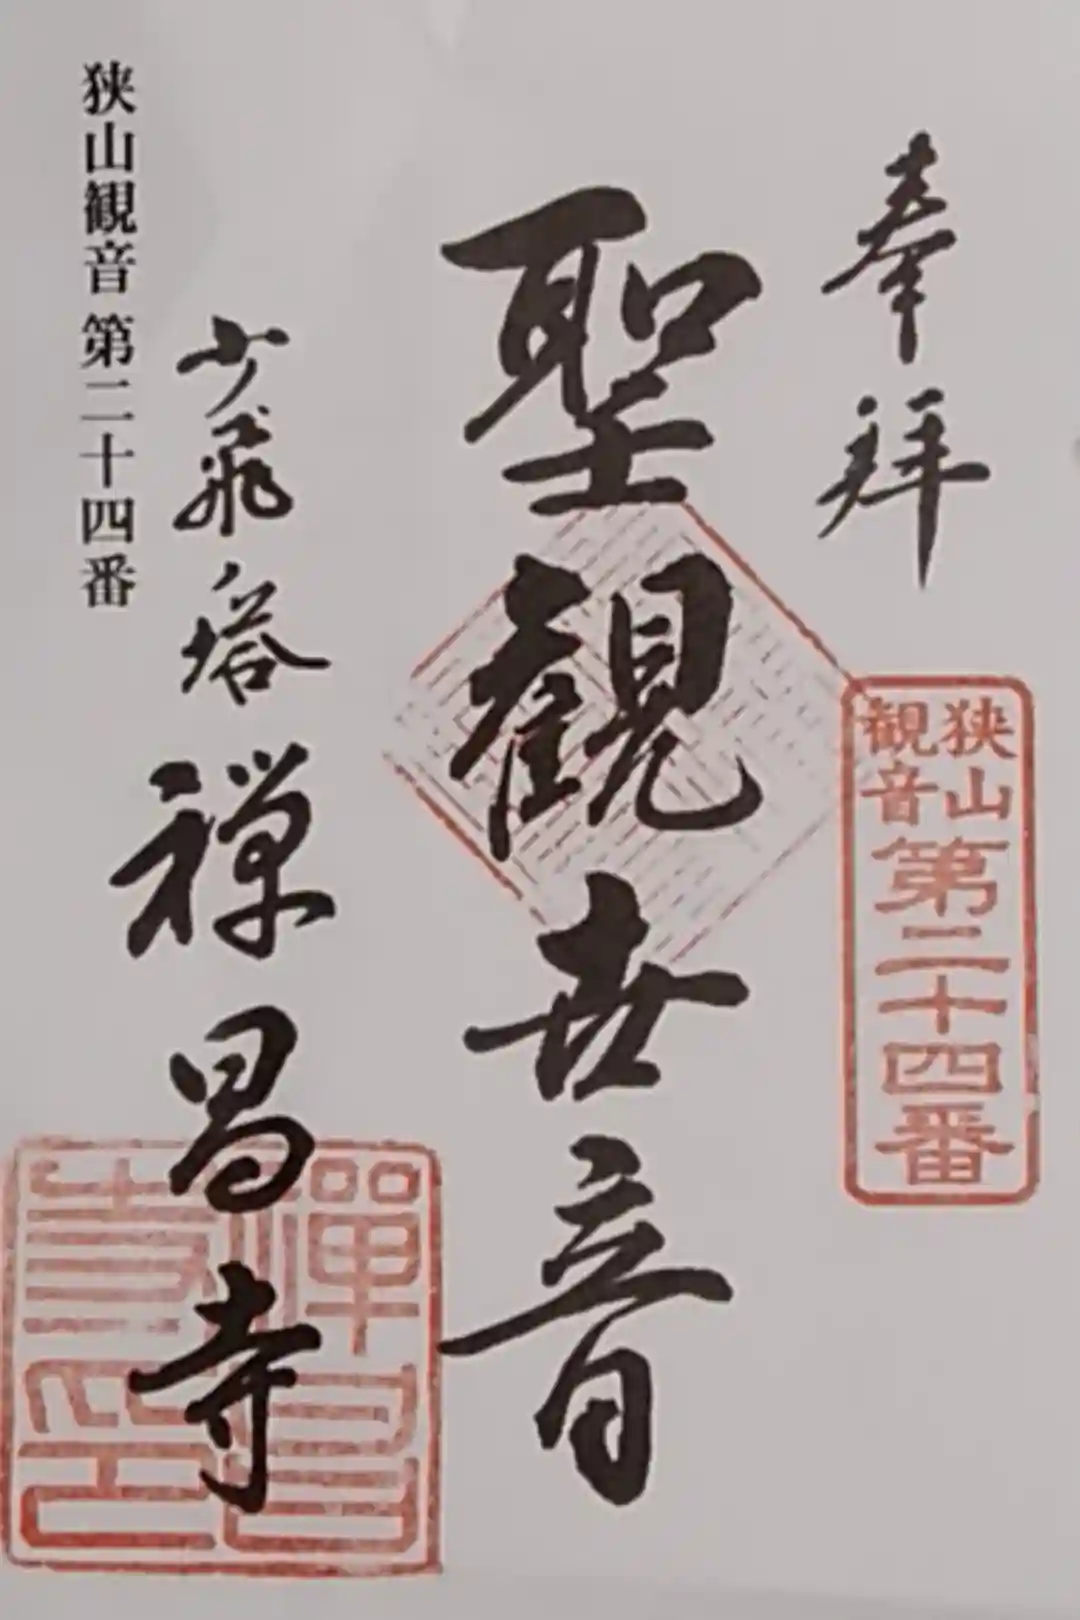 奉拝
狭山
観音
第二十四番
聖観世音
少飛塔 禅昌寺
禅昌
寺印
狭山観音 第二十四番